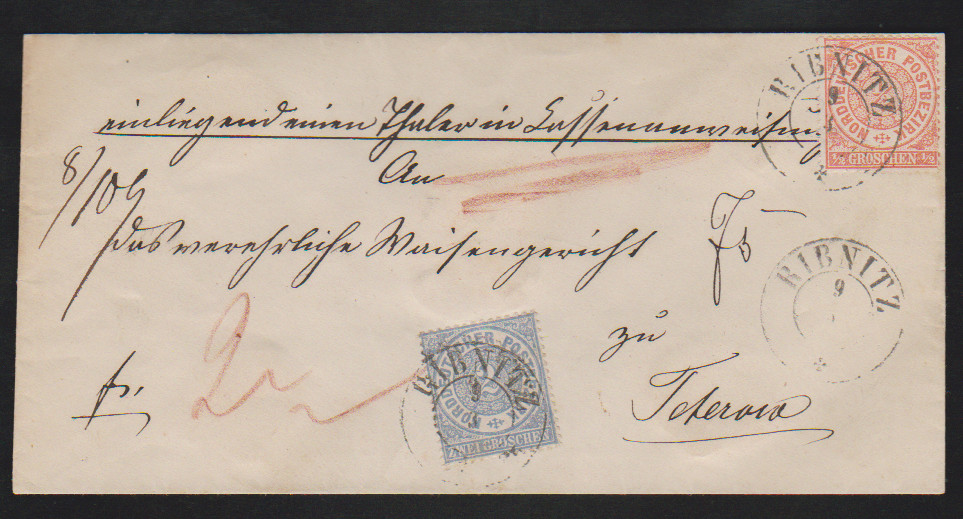 einliegend einen Thaler in Cassenanweisung
An
8/109
das verehrliche Waisengericht
zu
Teterow
fr.
2
RIBNITZ
9
NORDDEUTSCHER POSTBEZIRK
1/2 GROSCHEN 1/2
RIBNITZ
9
RIBNITZ
9
NORDDEUTSCHER POSTBEZIRK
ZWEI GROSCHEN